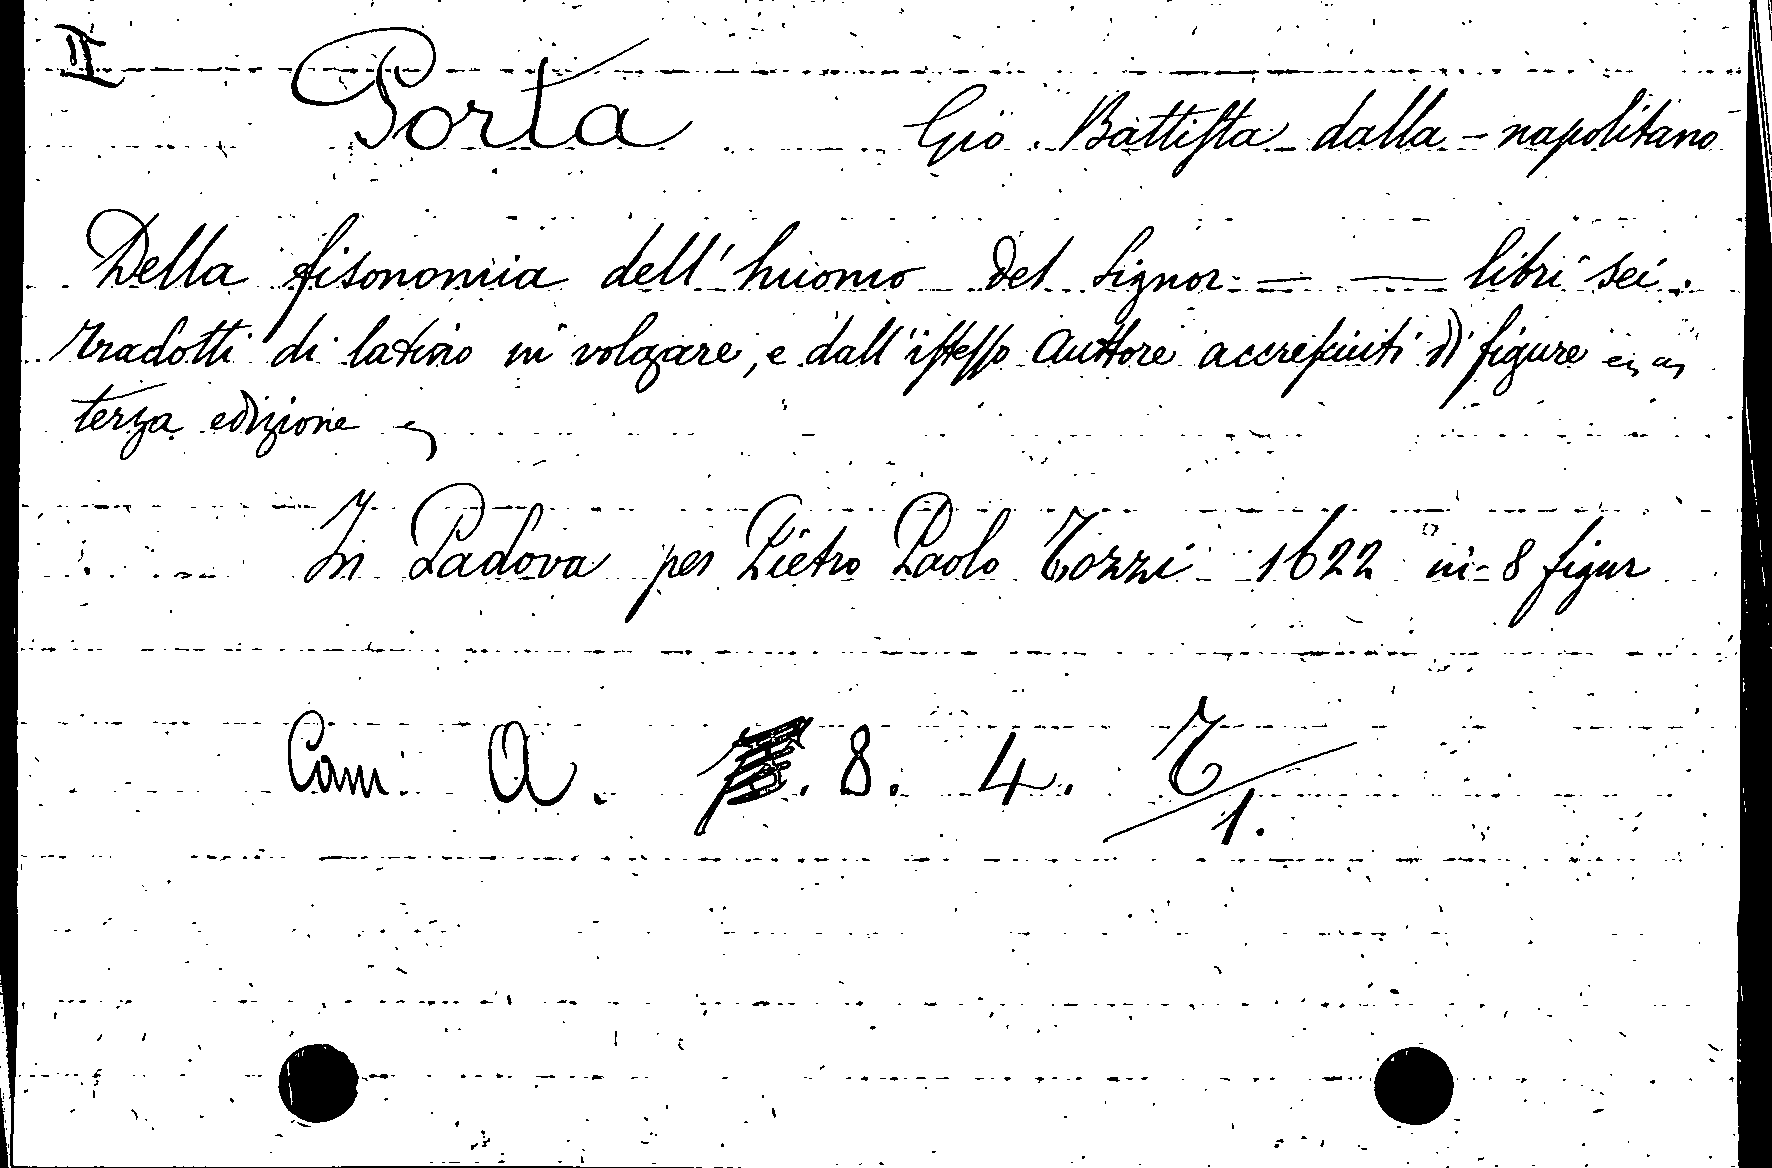 II
Porta Gio. Battista dalla - napolitano
Della fisonomia dell'huomo del signor — — libri sei.
tradotti di latino in volgare, e dall'istesso Auttore accresciuti di figure
terza edizione
In Padova per Pietro Paolo Tozzi 1622 in-8 figur
Cam A. 8. 4. T/1.